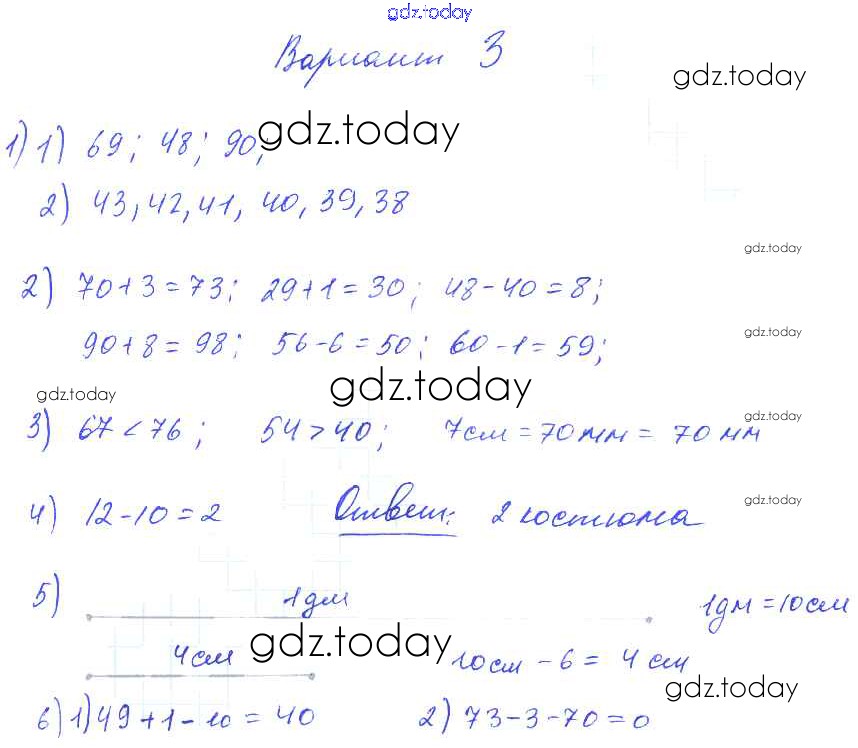 gdz.today
Вариант 3
gdz.today
1) 1) 69; 48; 90;
gdz.today
2) 43, 42, 41, 40, 39, 38
gdz.today
2) 70+3=73; 29+1=30; 48-40=8;
gdz.today
90+8=98; 56-6=50; 60-1=59;
gdz.today
gdz.today
gdz.today
3) 67<76; 54>40; 7см=70мм=70мм
gdz.today
4) 12-10=2 Ответ: 2 костюма
5) 1дм 1дм=10см
4см 10см-6=4см
gdz.today
gdz.today
6) 1) 49+1-10=40 2) 73-3-70=0